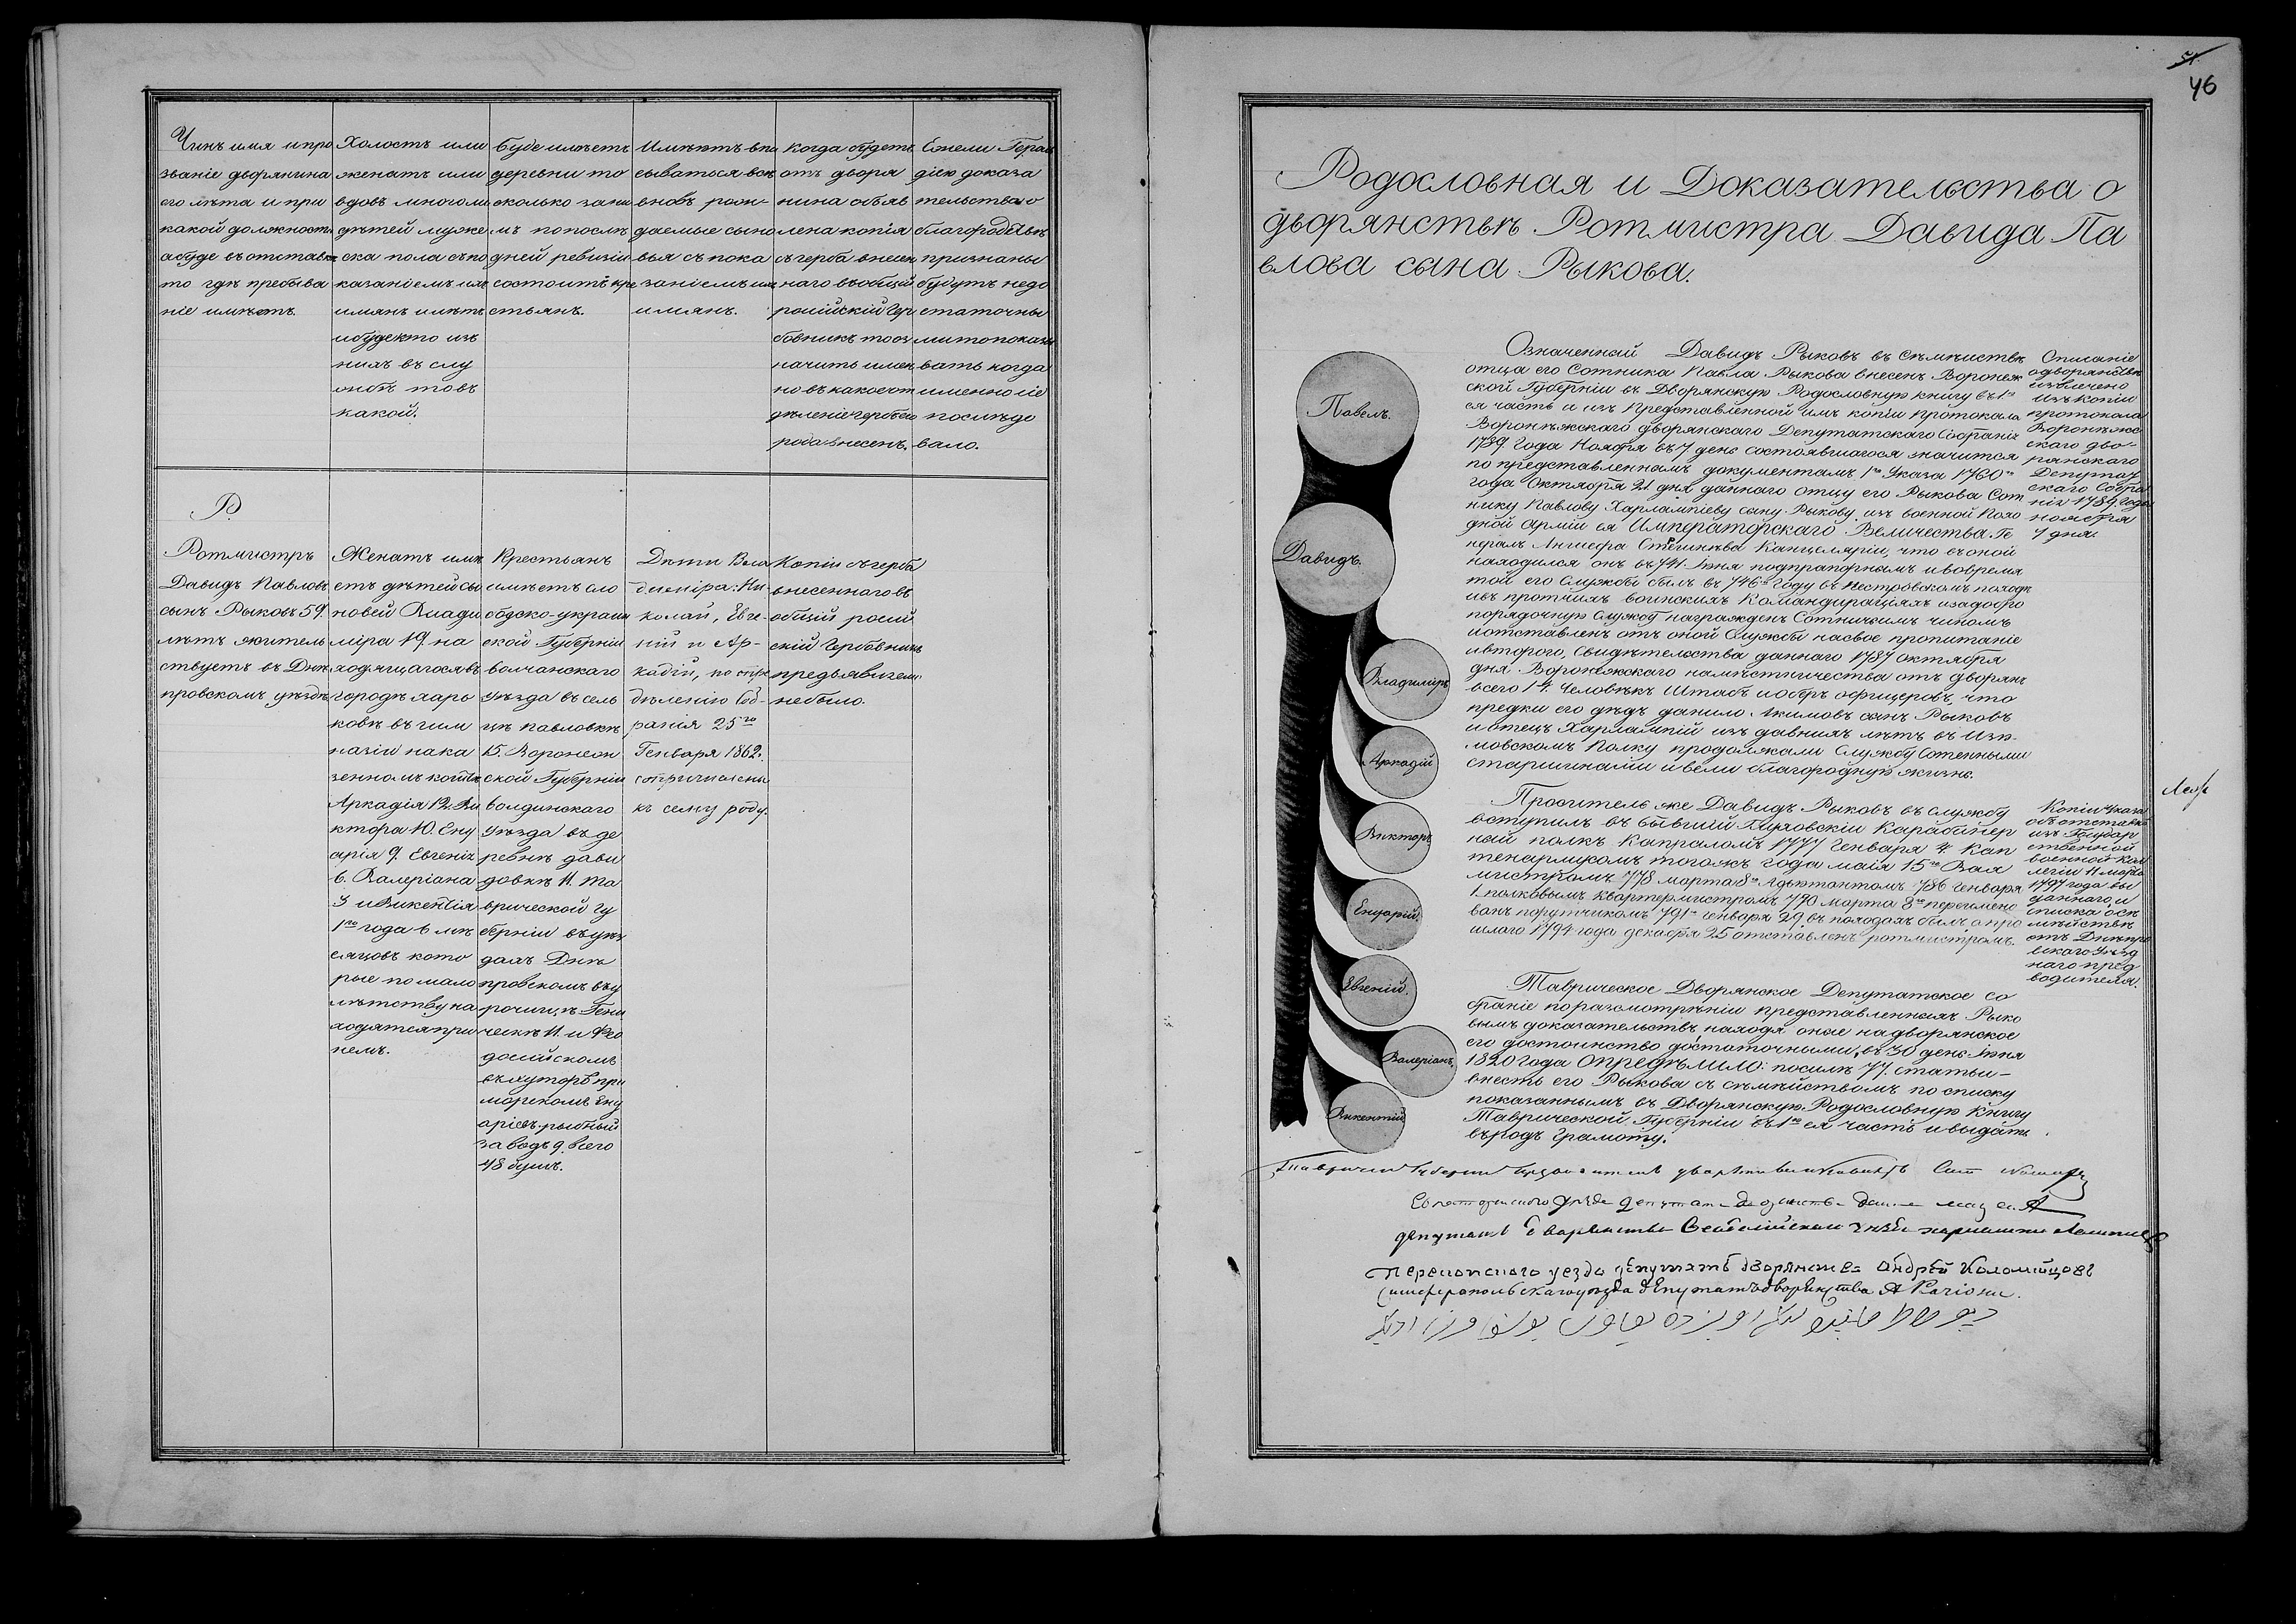 Чинъ имя и про
званіе дворянина
его лѣта и при
какой должности
а буде въ отставкѣ
то гдѣ пребыва
ніе имѣетъ.
Холостъ или
женатъ или
вдовъ много ли
дѣтей муже
ска пола съ по
казаніемъ ихъ
имянъ и лѣтъ
и буде кто изъ
нихъ въ слу
жбѣ то въ
какой.
буде имѣетъ
деревни то
сколько за ни
мъ по послѣ
дней ревизіи
состоитъ кре
стьянъ.
Имѣютъ впи
сываться всѣ
вновь рож-
даемые сыно
вья съ пока
заніемъ ихъ
имянъ.
когда будетъ
отъ дворя
нина объяв
лена копія
съ герба внесен
наго въ общій
россійскій Гер
бовникъ то оз
начить имен
но въ какое от
дѣленіе гербъ его
рода внесенъ.
Ежели Гераль
діею доказа
тельства о
благородствѣ
признаны
будутъ недо
статочны
ми то показы
вать когда
именно сіе
послѣдо
вало.
Р.
Ротмистръ
Давидъ Павловъ
сынъ Рыковъ 59.
лѣтъ житель
ствуетъ въ Днѣ
провскомъ уѣздѣ
Женатъ имѣ
етъ дѣтей сы
новей Влади
міра 19. на
ходящагося въ
городѣ харь
ковѣ въ гим
назіи на ка
зенномъ коштѣ
Аркадія 12. Ви
ктора 10. Ену
арія 9. Евгенія
6. Валеріана
3 и Викентія
1го года 6 мѣ
сяцовъ кото
рые по мало
лѣтству на
ходятся при
немъ.
Крестьянъ
имѣетъ сло
бодско-украин
ской Губерніи
волчанскаго
уѣзда въ сель
цѣ Павловкѣ
15. Воронеж
ской Губерніи
валдинскаго
уѣзда въ де
ревнѣ дави
довкѣ 11. та
врической гу
берніи въ уѣз
дахъ Днѣ
провскомъ въ у
рочищѣ Гени
ческѣ 11 и Фео
досійскомъ
въ хуторѣ при
морскомъ Ену
аріевъ рыбный
заводъ 9. всего
48 душъ.
Дѣти Вла
диміра: Ни
колай, Евге-
ній и Ар-
кадій, по опре
дѣленію Соб-
ранія 25го
Генваря 1862 г.
сопричислены
къ сему роду.
Копіи съ герба
внесеннаго въ
общій россій
скій Гербовникъ
предъявителемъ
небыло.
46
Родословная и Доказательства о
дворянствѣ Ротмистра Давида Па
влова сына Рыкова.
Павелъ.
Давидъ.
Владимиръ
Аркадій
Викторъ
Енуарій.
Евгеній.
Валеріанъ.
Викентій
Означенный Давидъ Рыковъ въ Семѣйствѣ
отца его Сотника Павла Рыкова внесенъ Воронеж
ской Губерніи въ Дворянскую Родословную книгу въ 1ю
ея часть и изъ представленной имъ копіи протокала
Воронѣжскаго дворянскаго Депутатскаго Собранія
1789. Года Ноября въ 7 день состоявшагося значится
по представленнымъ документамъ 1го Указа 1760го
года Октября 21. дня даннаго отцу его Рыкова Сот
нику Павлову Харлампіеву сыну Рыкову изъ военной Похо
дной Арміи ея Императорскаго Величества Ге
нералъ Аншефа Стрешнѣва Канцеляріи, что съ оной
находился онъ въ 741. Іюня подпрапорнымъ и во время
той его службы былъ въ 746м году въ нестровскомъ походѣ
и въ протчихъ воинскихъ Командираціяхъ и за добро
порядочную службу награжденъ Сотничимъ чиномъ
и отставленъ отъ оной службы на свое пропитаніе
и втораго, Свидѣтельства даннаго 1787 октября
дня Воронежскаго намѣстничества отъ дворянъ
всего 14. Человѣкъ Штабъ и оберъ офицеровъ, что
предки его дѣдъ данило Акимовъ сынъ Рыковъ
и отецъ Харлампій изъ давнихъ лѣтъ въ Изю
мовскомъ Полку продолжали Службу Сотенными
старшинами и вели благородную жизнь.
Списаніе
о дворянствѣ
извлечено
изъ копіи
протокала
Воронѣжс
скаго дво-
рянскаго
Депутат
скаго Собра
нія 1789. года
ноября
7 дня.
Проситель же Давидъ Рыковъ въ службу
вступилъ въ бывшій Глуховскій Карабинер
ный полкъ Капраломъ 1777 Генваря 4. Кап
тенармусомъ того жъ года маія 15го Вах
мистромъ 778 марта 8го Адьютантомъ 786 Генваря
1. полковымъ квартермистромъ 790 марта 8го переимено
ванъ порутчикомъ 791го Генваря 29. въ походахъ былъ а про
шлаго 1794 года декабря 25 отставленъ ротмистромъ.
Копіи Указа
объ отставкѣ
изъ Государ
ственной
военной Кол
легіи 11 марта
1797 года вы
даннаго и
списка о се
мѣйствѣ
отъ Днѣпро
вскаго Уѣзд
наго пред
водителя.
Таврическое Дворянское Депутатское со
браніе по разсмотрѣніи представленныхъ Рыко
вымъ доказательствъ находя оные на дворянское
его достоинство достаточными, въ 30 день Іюня
1820 Года Опредѣлило: по силѣ 77. статьи-
внесть его Рыкова съ семѣйствомъ по списку
показаннымъ въ Дворянскую Родословную Книгу
Таврической Губерніи въ 1ю ея часть и выдать
въ родъ Грамоту.
депутатъ дворянства
Перекопскаго уезда депутатъ дворянства Андрей Коломийцовъ
Симферопольскаго уезда депутатъ дворянства А